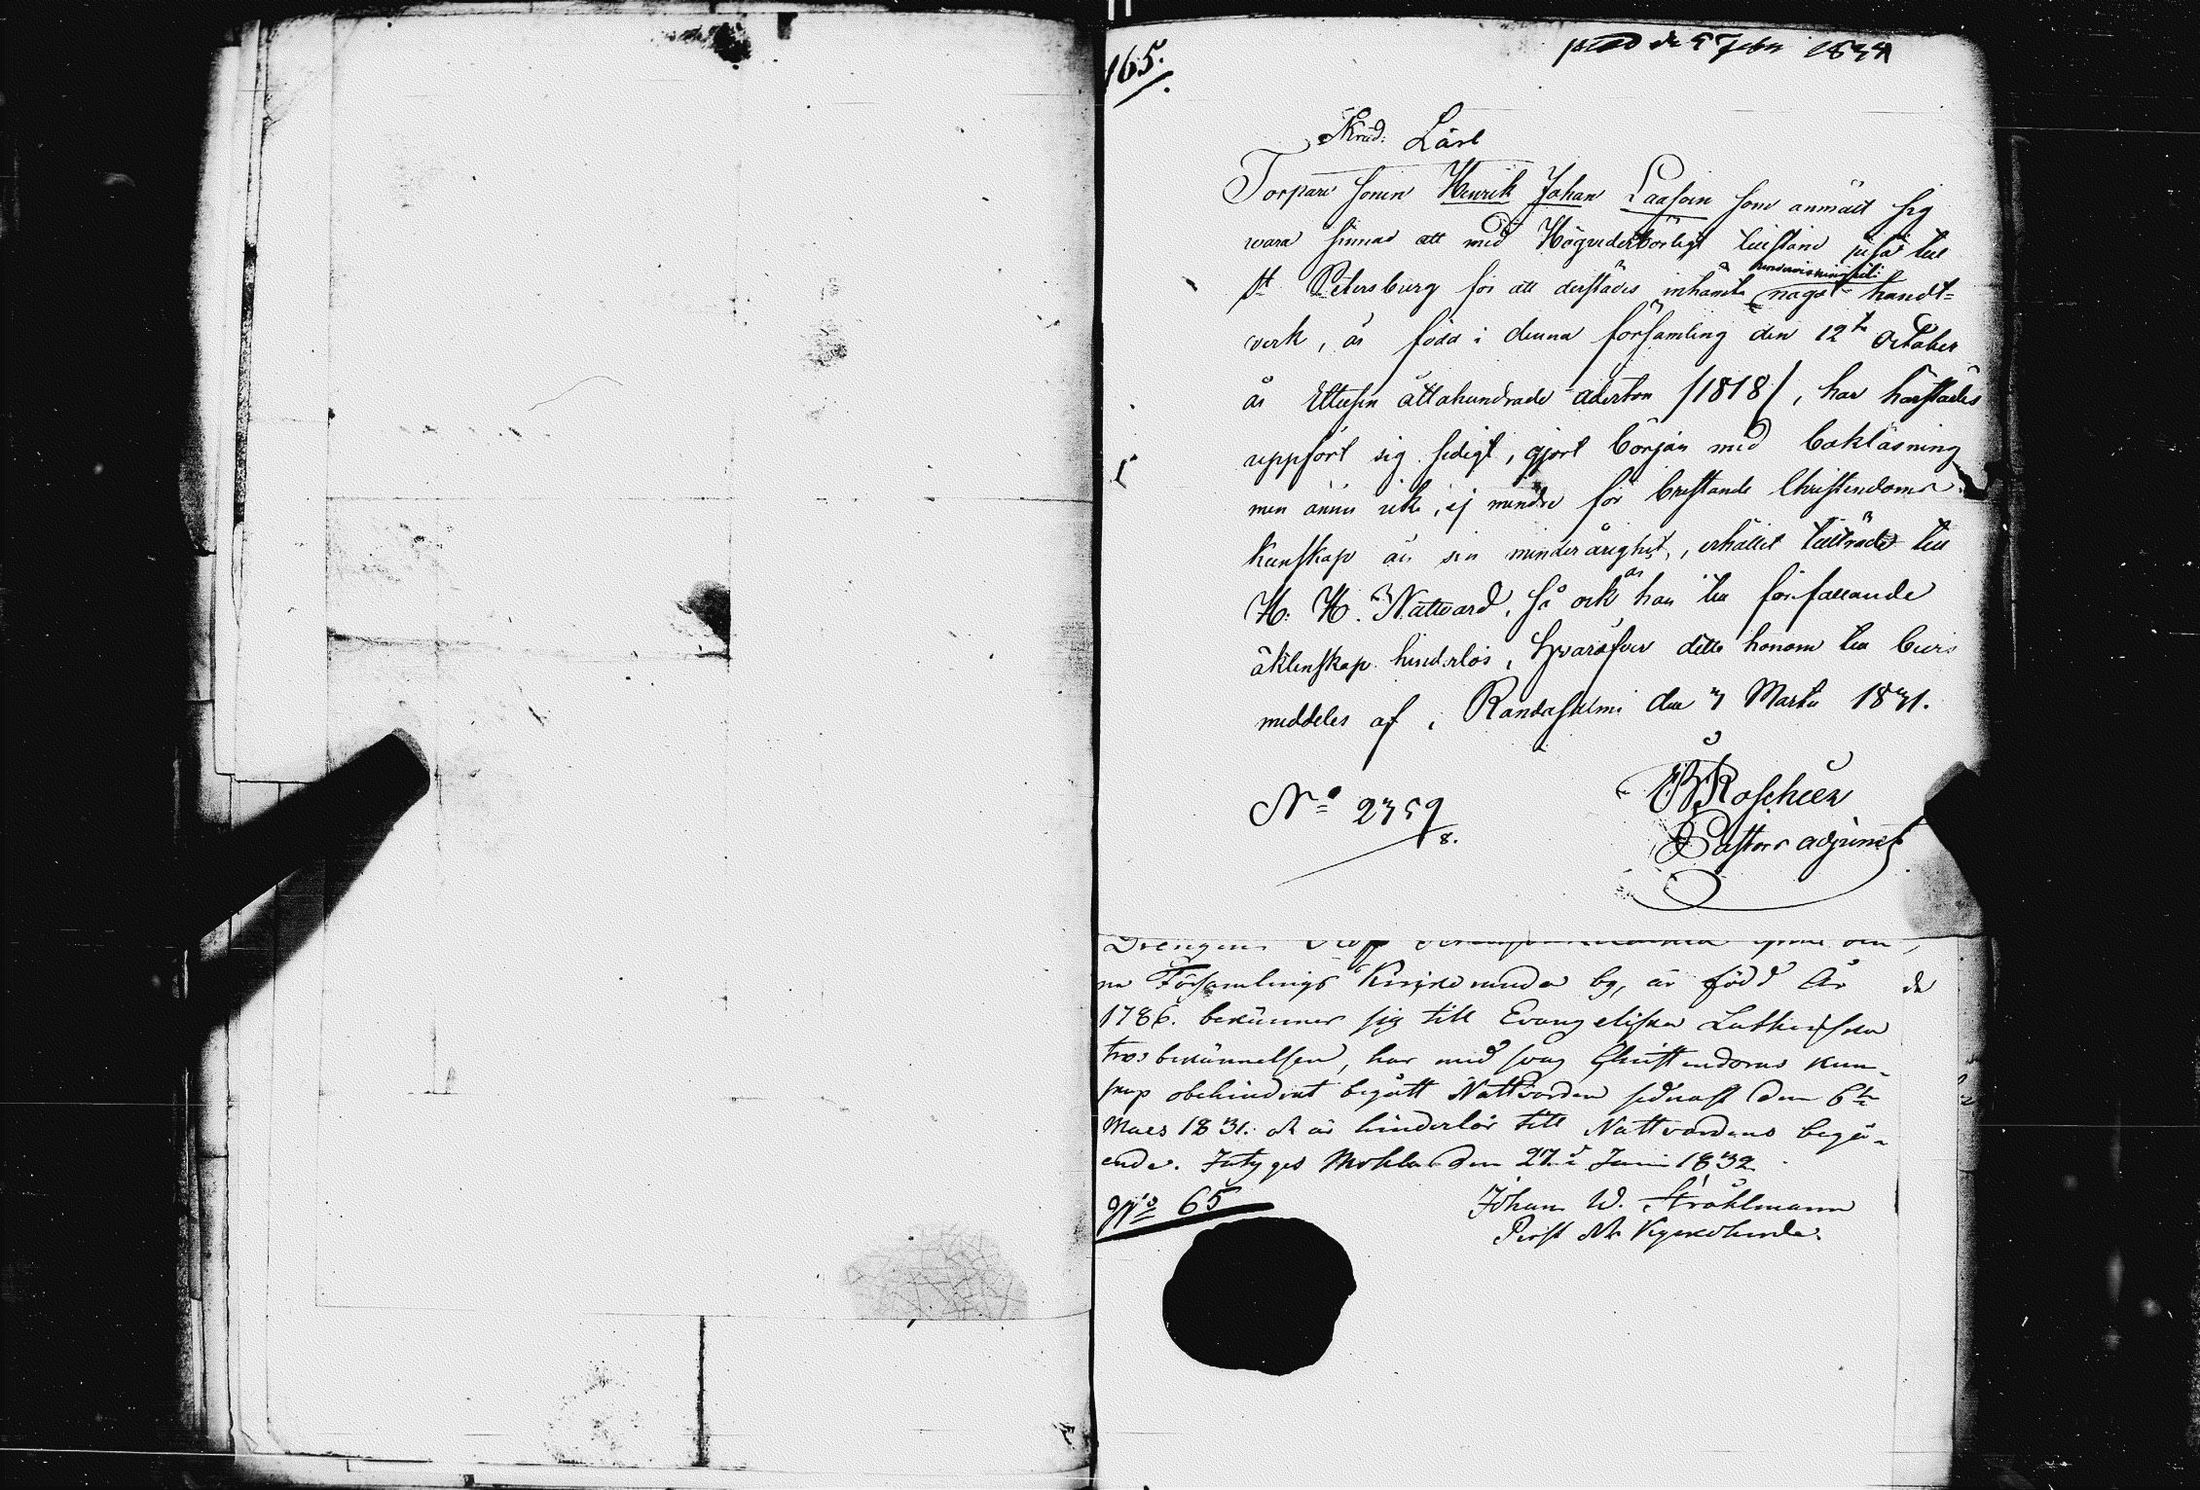 165.
d. 5 Febr 1834
Skrid: Lärl
Torpare sonen Henrik Johan Laasoin som anmält sig
wara sinnad att med Högvederbörligt tillstånd resa till
St Petersburg för att derstädes inhämta undervisning uti något handt=
verk, är född i denna församling den 12te October
år Ettusen åttahundrade aderton /1818/, har härstädes
uppfört sig sedigt, gjort början med bokläsning
men ännu icke, ej mindre för bristande Christendoms
kunskap än sin minderårighet, erhållit tillträde till
H. H. Nattvard, så ock är han till förfallande
äktenskap hinderlös, hvaröfver detta honom till bevis
meddeles af, Randasalmi den 7 Martii 1831.
No 2359
8.
Roschier
Pastors adjunct
Drengen
na Församlings by, är född År de
1786. bekänner sig till Evangeliska Lutherska
trosbekännelsen, har med svag Christendoms kun-
skap obehindrat begått Nattvarden sednast den 6te
Mars 1831. och är hinderlös till Nattvardens begå-
ende. Intygas Mohla den 27de Juni 1832
No 65
Johan W. Ströhlmann